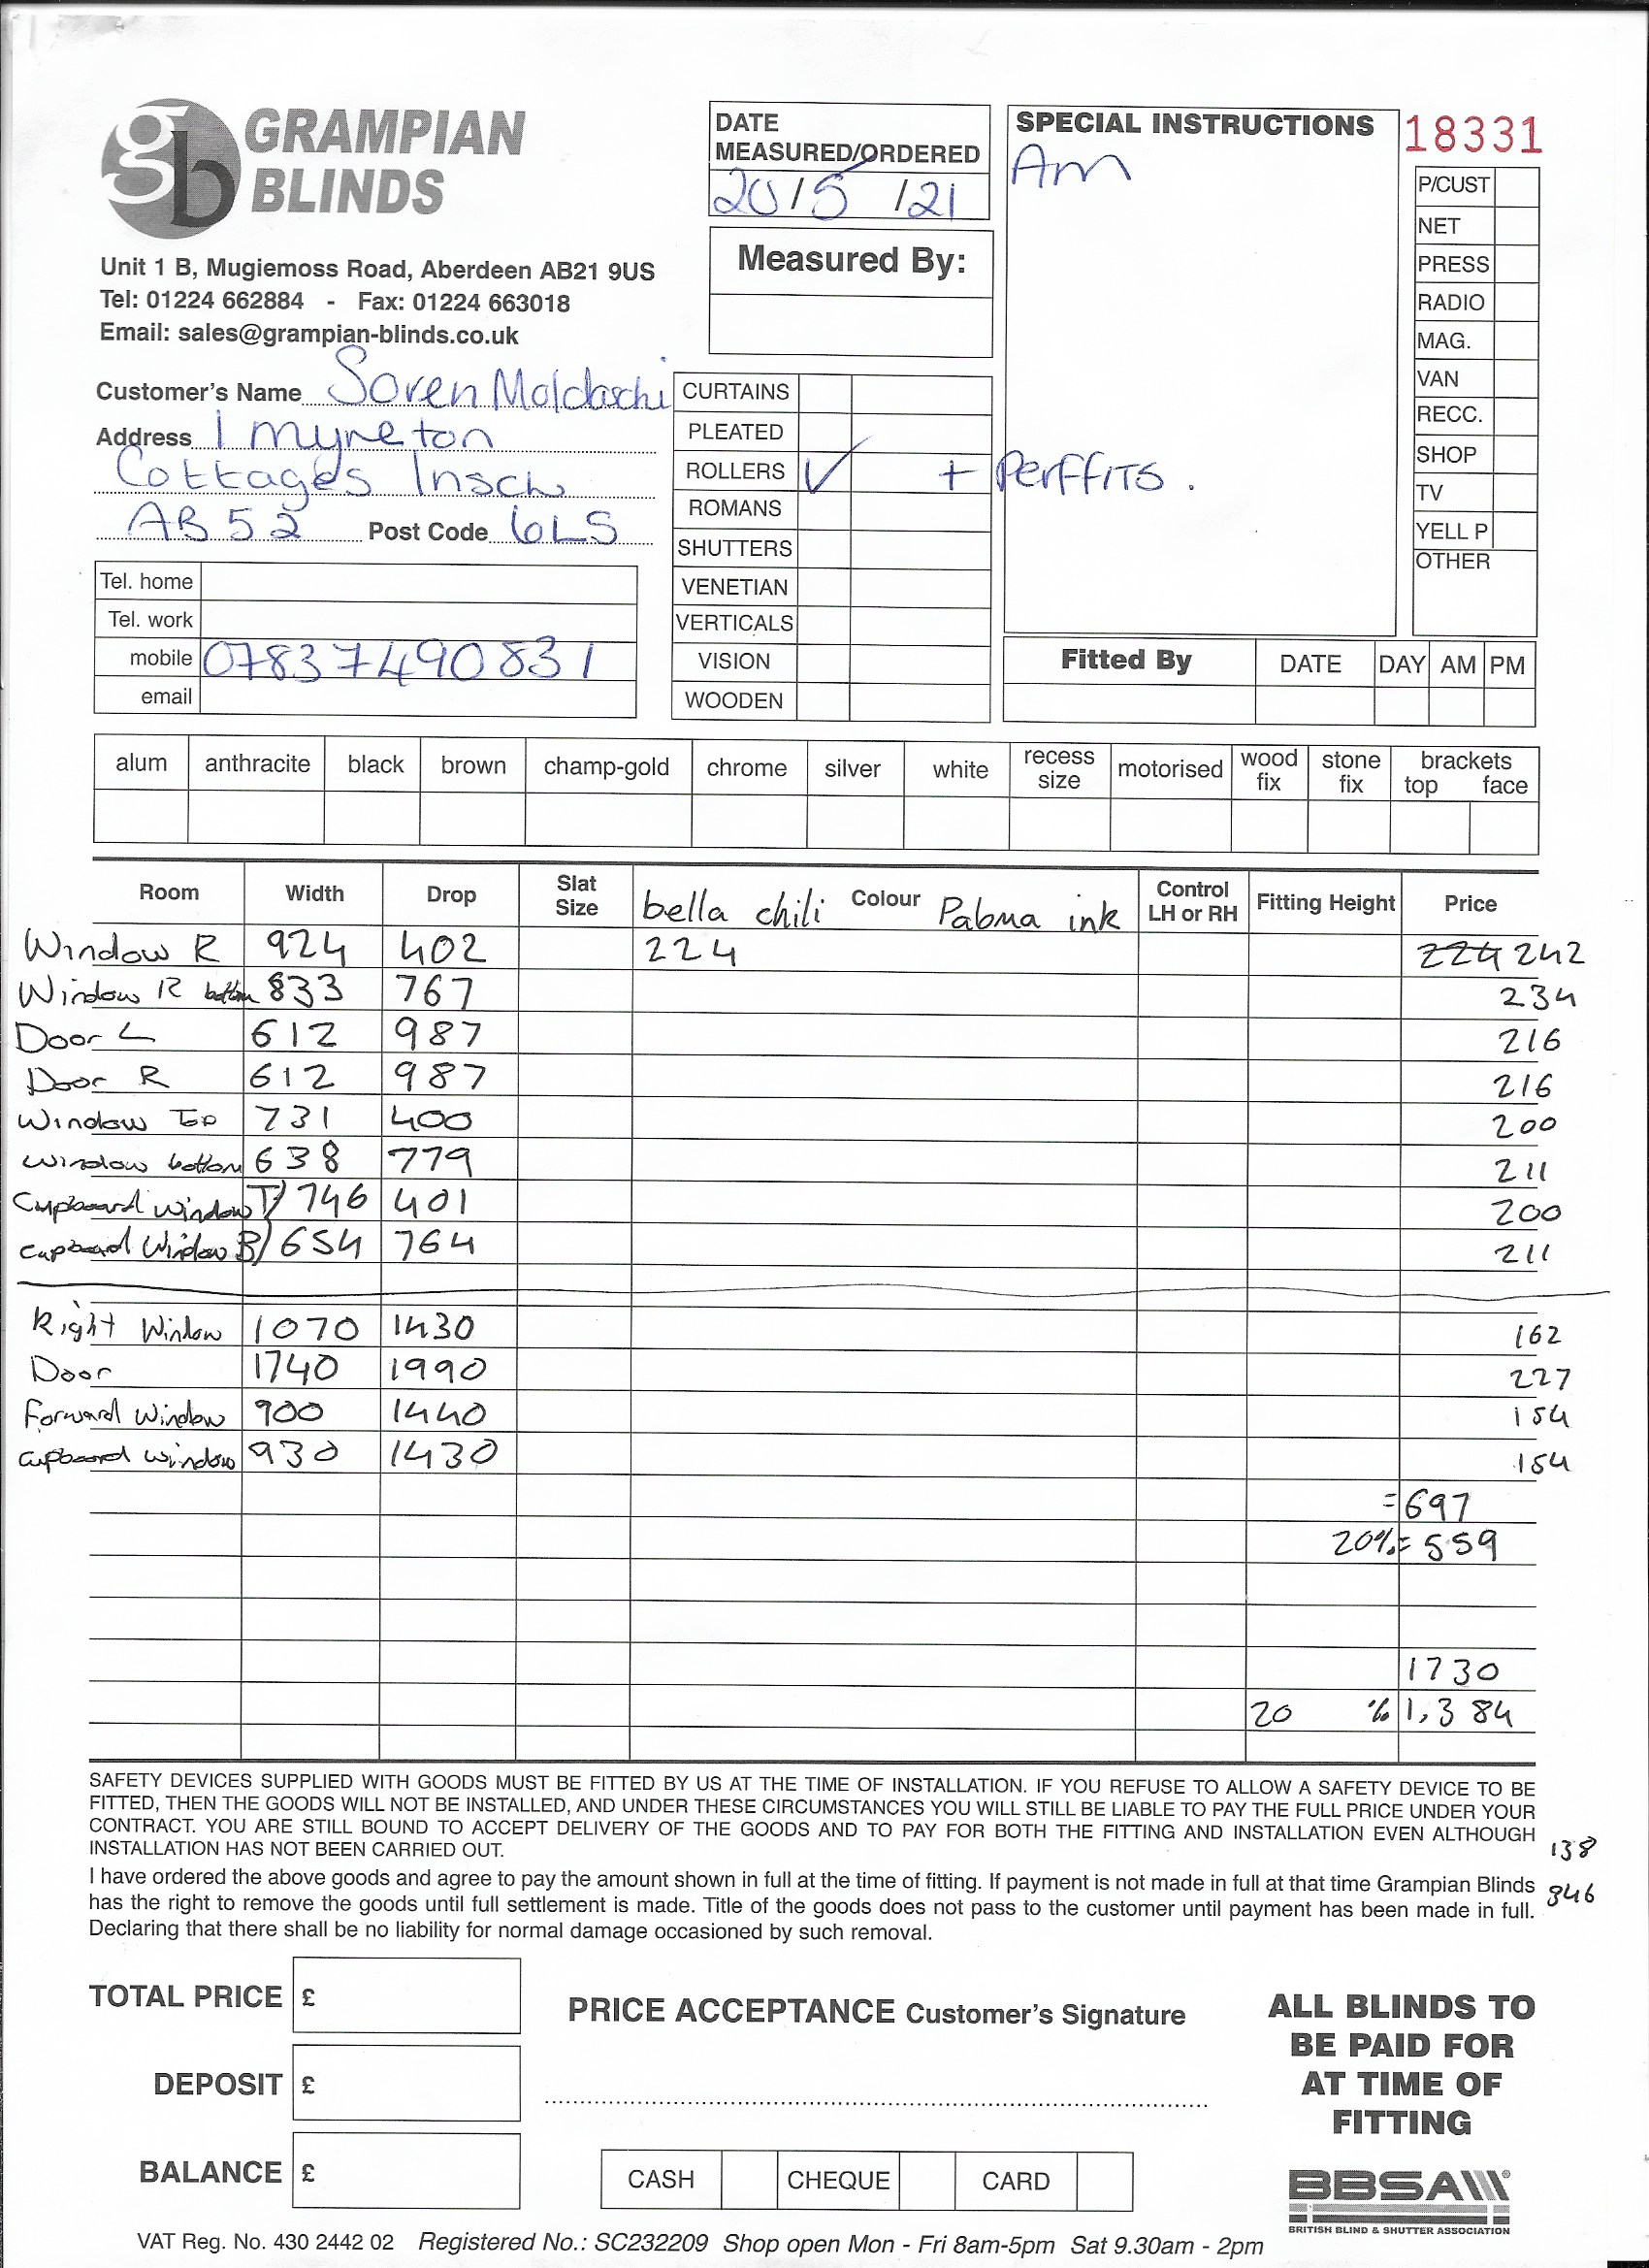 GRAMPIAN
BLINDS
Unit 1 B, Mugiemoss Road, Aberdeen AB21 9US
Tel: 01224 662884 - Fax: 01224 663018
Email: sales@grampian-blinds.co.uk
DATE
MEASURED/ORDERED
20/5/21
Measured By:
SPECIAL INSTRUCTIONS
Am
18331
P/CUST
NET
PRESS
RADIO
MAG.
VAN
RECC.
SHOP
TV
YELL P
OTHER
Customer's Name Soren Moldaschi
Address 1 myreton
Cottages Insch
AB52 Post Code 6LS
Tel. home
Tel. work
mobile 07837490831
email
CURTAINS
PLEATED
ROLLERS ✓ + PerffITS.
ROMANS
SHUTTERS
VENETIAN
VERTICALS
VISION
WOODEN
Fitted By DATE DAY AM PM
alum anthracite black brown champ-gold chrome silver white recess size motorised wood fix stone fix brackets top face
Room Width Drop Slat Size bella chili Colour Paloma ink Control LH or RH Fitting Height Price
Window R 924 402 224 224 242
Window R bottom 833 767 234
Door L 612 987 216
Door R 612 987 216
Window Top 731 400 200
Window bottom 638 779 211
Cupboard Window T/ 746 401 200
Cupboard Window B/ 654 764 211
Right Window 1070 1430 162
Door 1740 1990 227
Forward Window 900 1440 154
Cupboard Window 930 1430 154
=697
20%= 559
1730
20 % 1,384
SAFETY DEVICES SUPPLIED WITH GOODS MUST BE FITTED BY US AT THE TIME OF INSTALLATION. IF YOU REFUSE TO ALLOW A SAFETY DEVICE TO BE
FITTED, THEN THE GOODS WILL NOT BE INSTALLED, AND UNDER THESE CIRCUMSTANCES YOU WILL STILL BE LIABLE TO PAY THE FULL PRICE UNDER YOUR
CONTRACT. YOU ARE STILL BOUND TO ACCEPT DELIVERY OF THE GOODS AND TO PAY FOR BOTH THE FITTING AND INSTALLATION EVEN ALTHOUGH
INSTALLATION HAS NOT BEEN CARRIED OUT.
138
I have ordered the above goods and agree to pay the amount shown in full at the time of fitting. If payment is not made in full at that time Grampian Blinds
346
has the right to remove the goods until full settlement is made. Title of the goods does not pass to the customer until payment has been made in full.
Declaring that there shall be no liability for normal damage occasioned by such removal.
TOTAL PRICE £
PRICE ACCEPTANCE Customer's Signature
DEPOSIT £
BALANCE £
CASH CHEQUE CARD
ALL BLINDS TO
BE PAID FOR
AT TIME OF
FITTING
BBSA
BRITISH BLIND & SHUTTER ASSOCIATION
VAT Reg. No. 430 2442 02 Registered No.: SC232209 Shop open Mon - Fri 8am-5pm Sat 9.30am - 2pm